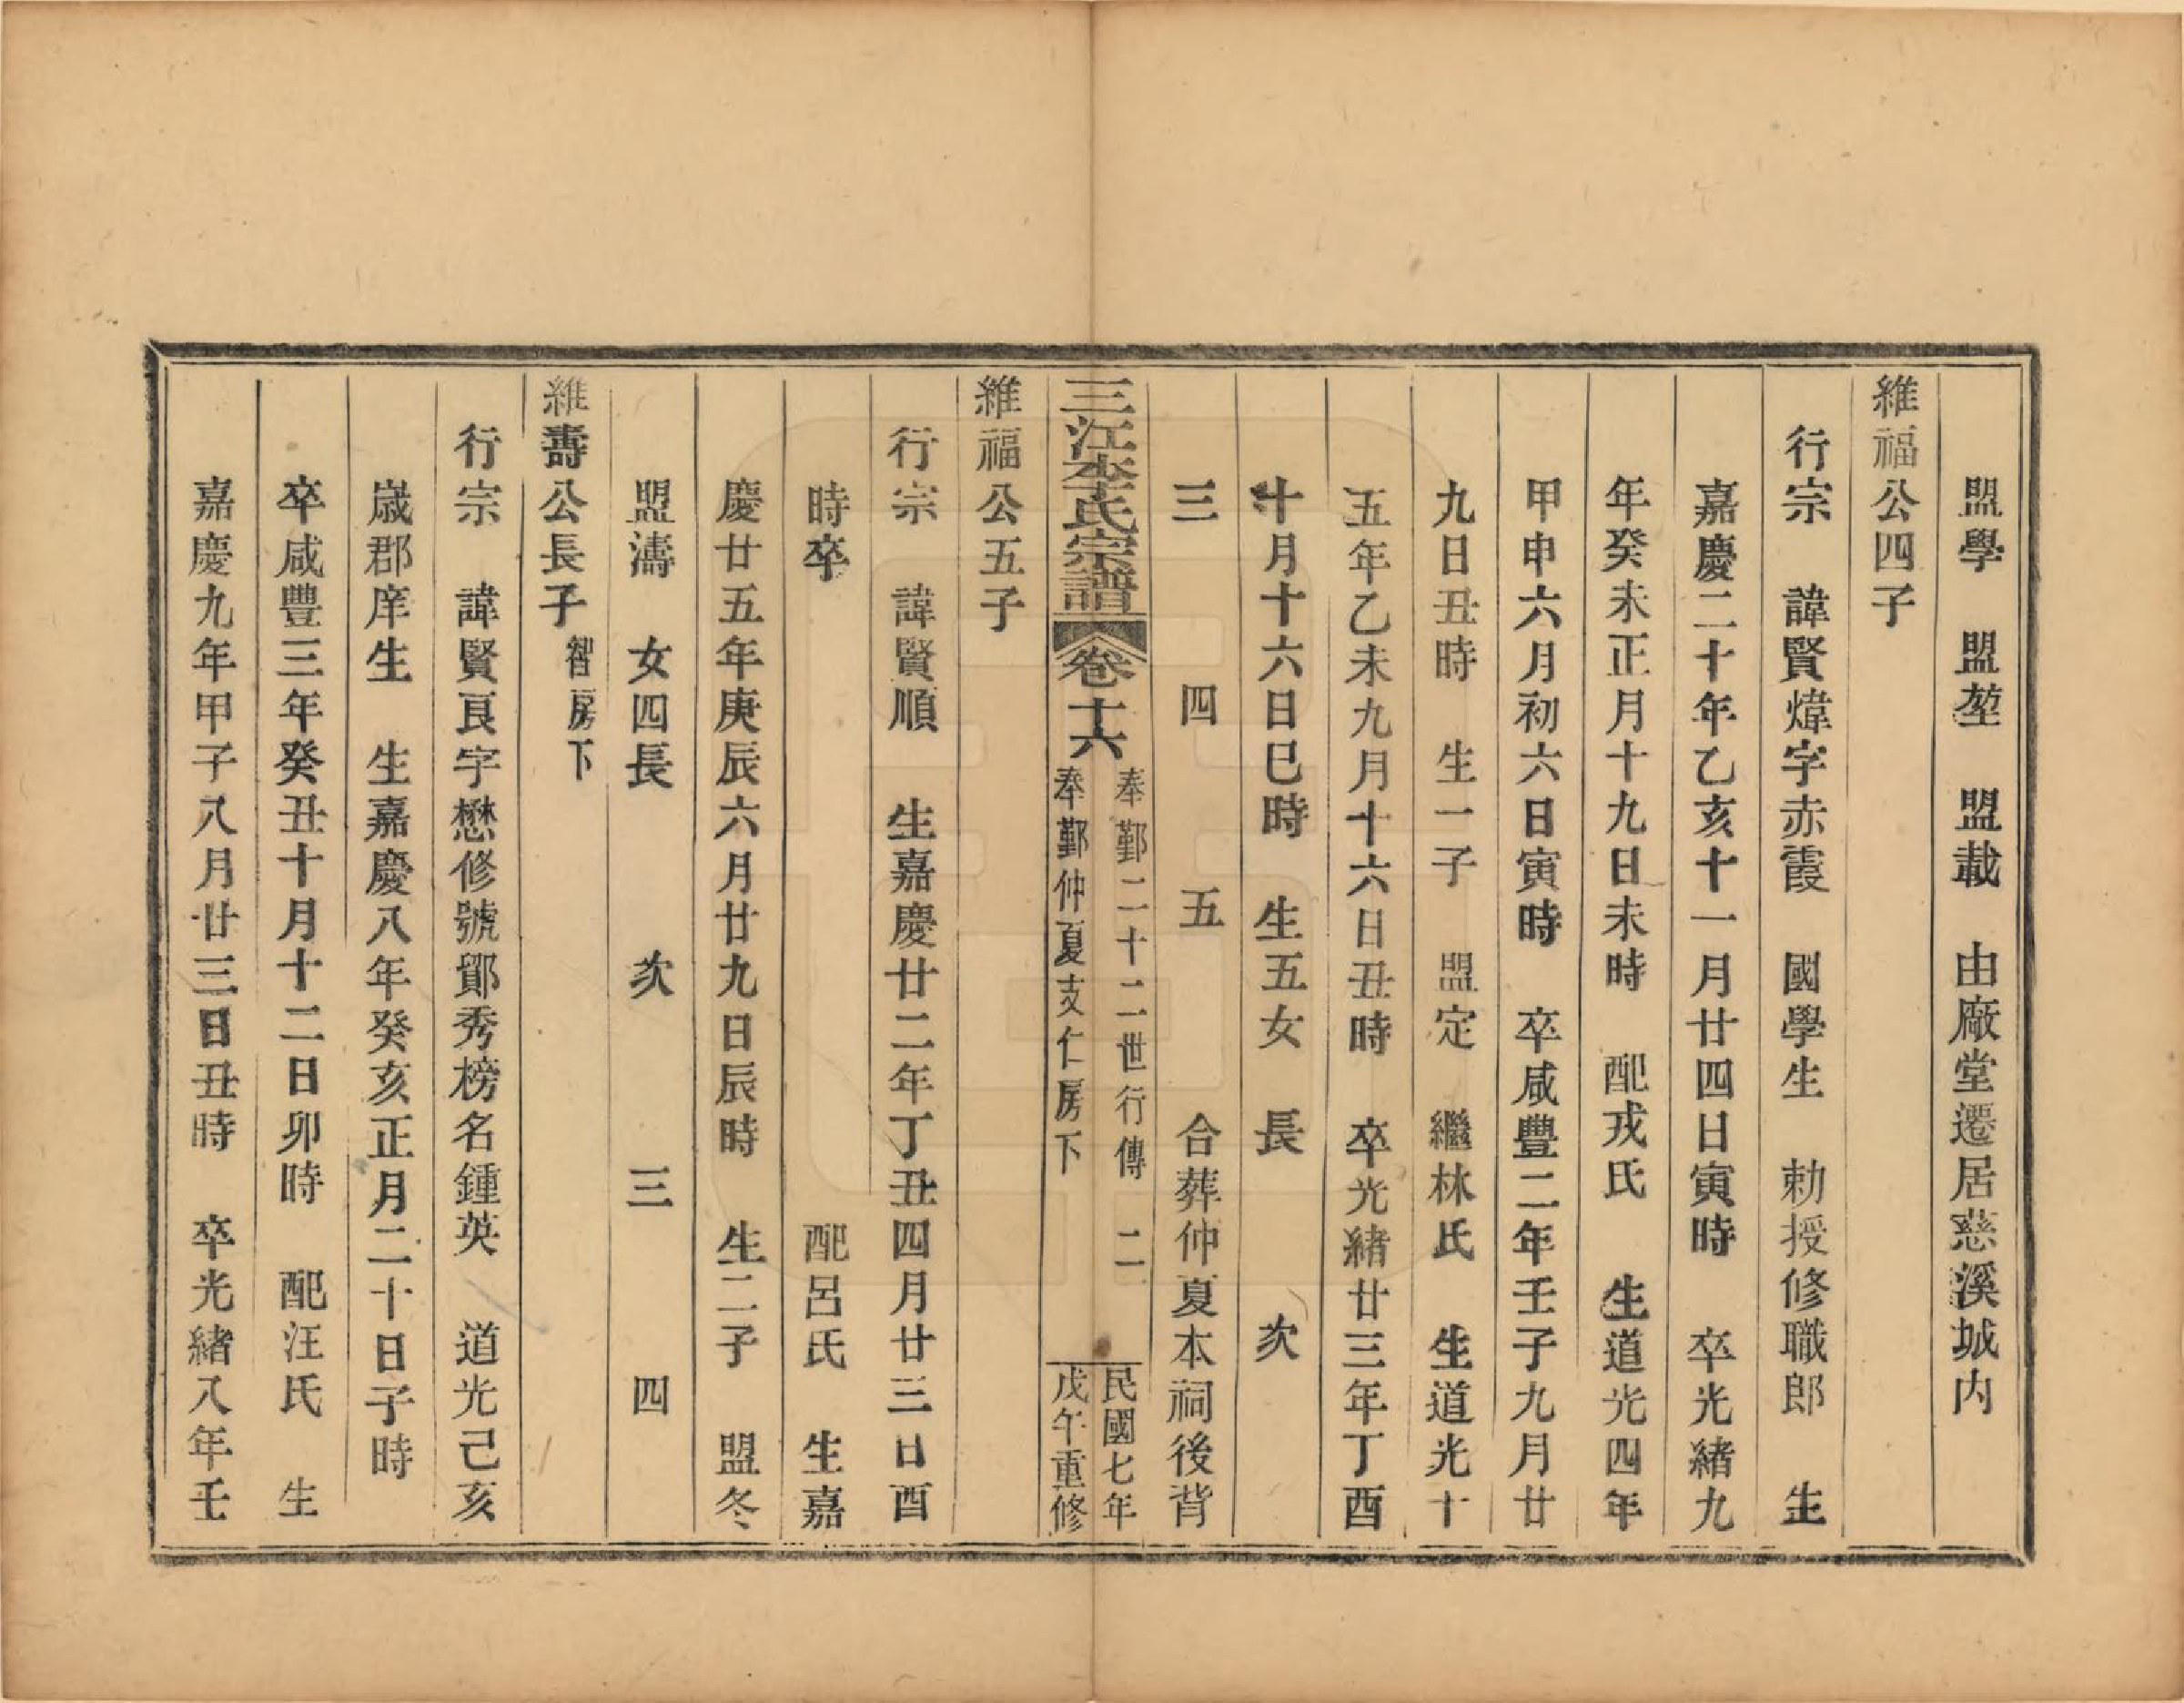 盟學　盟堃　盟載　由廠堂遷居慈溪城内
維福公四子
行宗　諱賢煒字赤霞　國學生　勅授修職郎　生
嘉慶二十年乙亥十一月廿四日寅時　卒光緒九
年癸未正月十九日未時　配戎氏　生道光四年
甲申六月初六日寅時　卒咸豐二年壬子九月廿
九日丑時　生一子　盟定　繼林氏　生道光十
五年乙未九月十六日丑時　卒光緒廿三年丁酉
十月十六日巳時　生五女　長　　　次
三　　　四　　　五　　　合葬仲夏本祠後背
三江李氏宗譜　卷十六　奉鄞二十二世行傳　二
奉鄞仲夏支仁房下
民國七年
戊午重修
維福公五子
行宗　諱賢順　生嘉慶廿二年丁丑四月廿三日酉
時卒　　　　　　　　　　　　配呂氏　生嘉
慶廿五年庚辰六月廿九日辰時　生二子　盟冬
盟濤　女四長　　　次　　　三　　　四
維壽公長子智房下
行宗　諱賢良字懋修號鄮秀榜名鍾英　道光己亥
歲郡庠生　生嘉慶八年癸亥正月二十日子時
卒咸豐三年癸丑十月十二日卯時　配汪氏　生
嘉慶九年甲子八月廿三日丑時　卒光緒八年壬